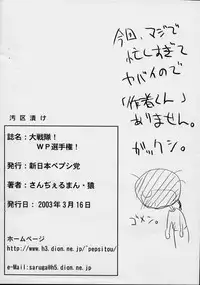 今回、マジで
忙しすぎて
ヤバイので
「作者くん」
ありません。
ガックシ。
ゴメン。
汚区漬け
誌名：大戦隊！
ＷＰ選手権！
発行：新日本ペプシ党
著者：さんぢぇるまん・猿
発行日：2003年3月16日
ホームページ
http://www.h3.dion.ne.jp/~pepsitou/
e-Mail:saruga@h5.dion.ne.jp